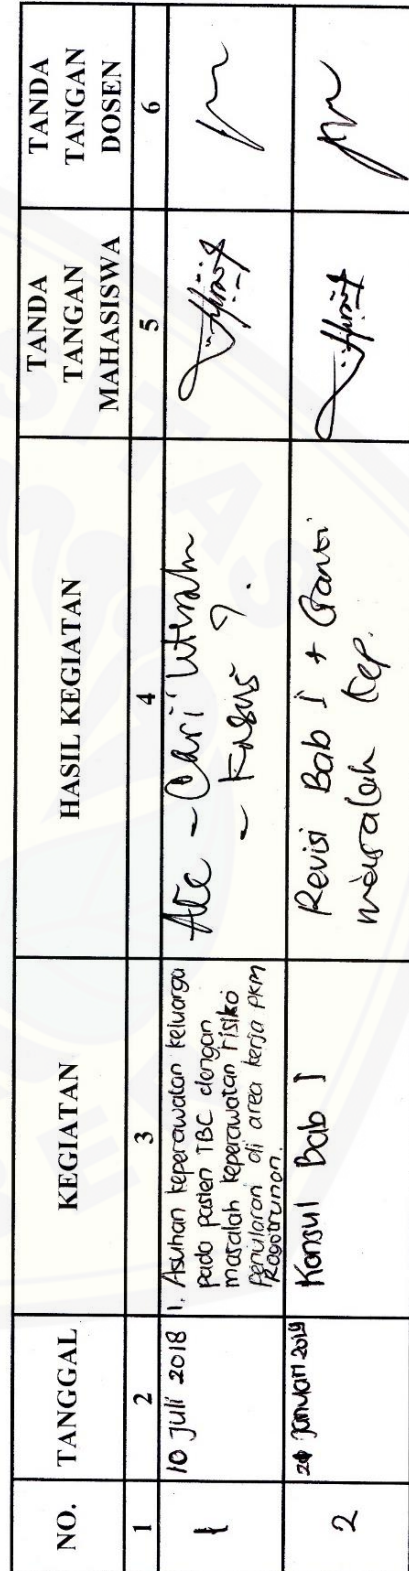 NO.
TANGGAL
KEGIATAN
HASIL KEGIATAN
TANDA
TANGAN
MAHASISWA
TANDA
TANGAN
DOSEN
1
2
3
4
5
6
1
10 Juli 2018
1. Asuhan keperawatan keluarga
pada pasien TBC dengan
masalah keperawatan risiko
penularan di area kerja PKM
Rogotrunan.
Acc - Cari
- Kasus
2
Januari 2019
Konsul Bab I
Revisi Bab I + Ganti
masalah kep.